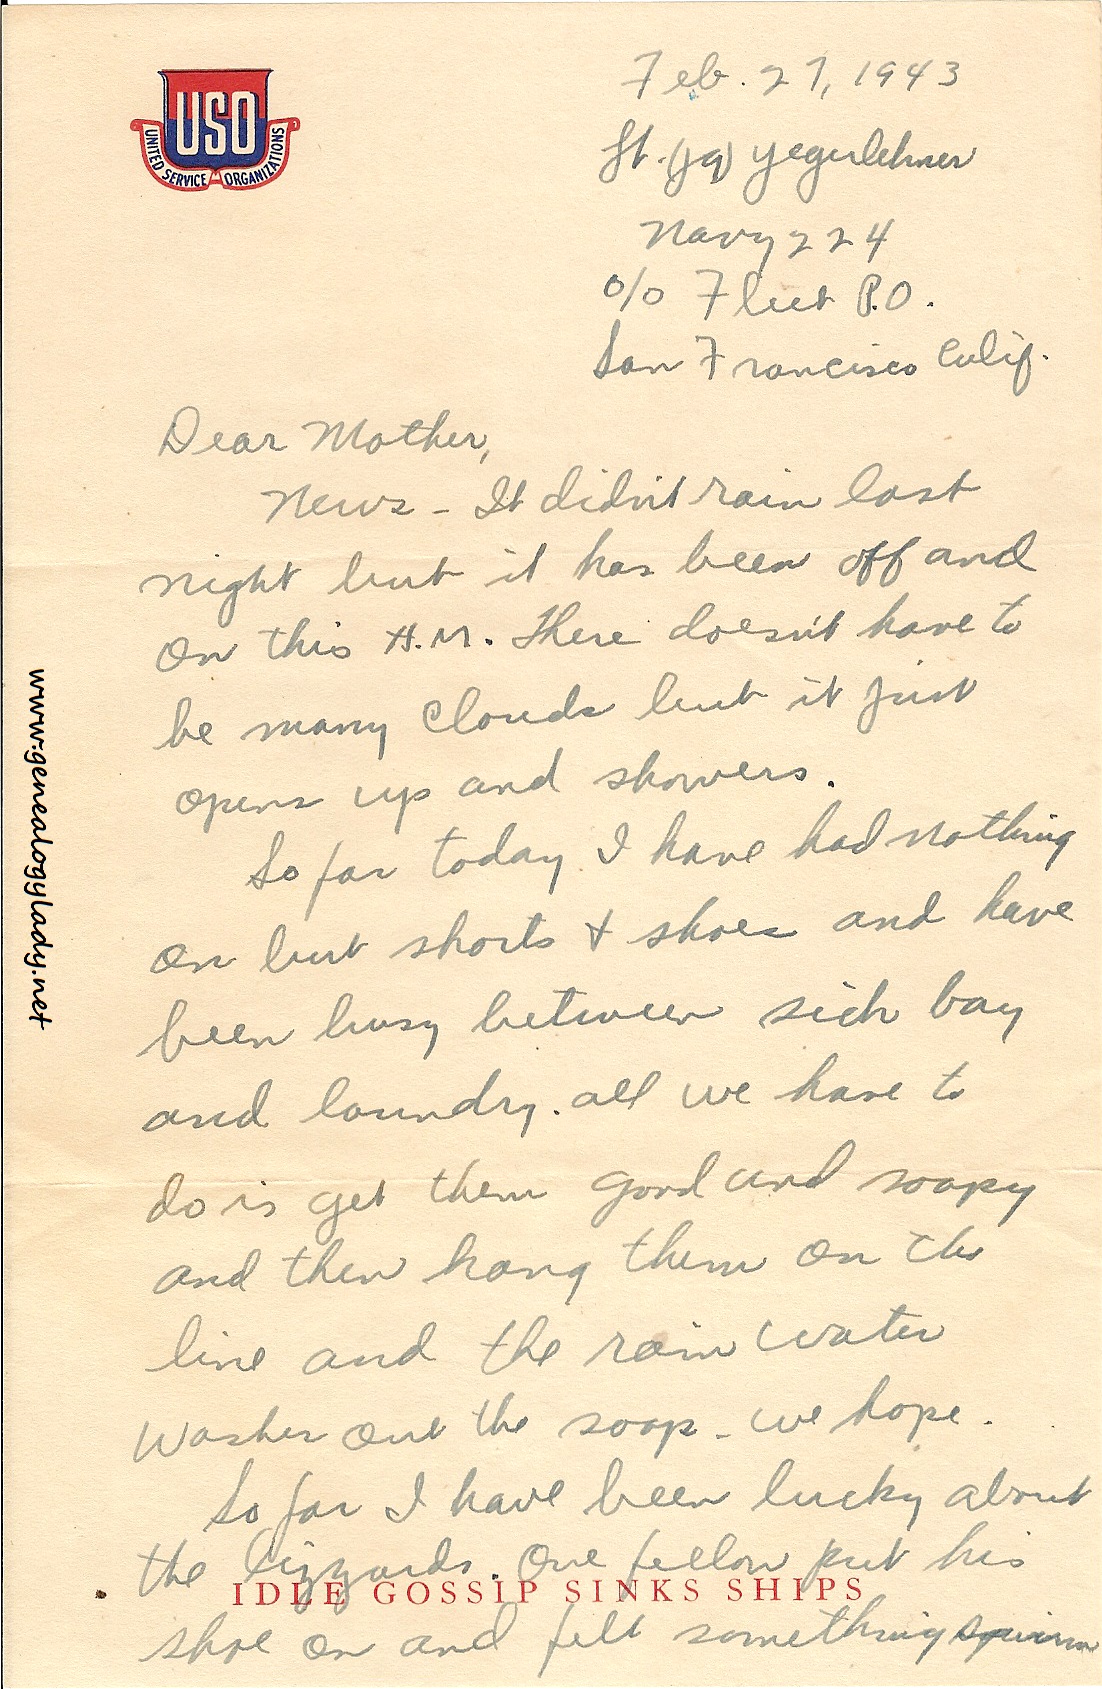 USO
UNITED SERVICE ORGANIZATIONS
Feb. 27, 1943
Lt. (jg) Yegerlehner
Navy 224
c/o Fleet P.O.
San Francisco Calif.
Dear Mother,
News - It didn't rain last
night but it has been off and
on this A.M. There doesn't have to
be many clouds but it just
opens up and showers.
So far today I have had nothing
on but shorts + shoes and have
been busy between sick bay
and laundry. All we have to
do is get them good and soapy
and then hang them on the
line and the rain water
washes out the soap - we hope.
So far I have been lucky about
the lizzards. One fellow put his
IDLE GOSSIP SINKS SHIPS
shoe on and felt something squirm
www.genealogylady.net